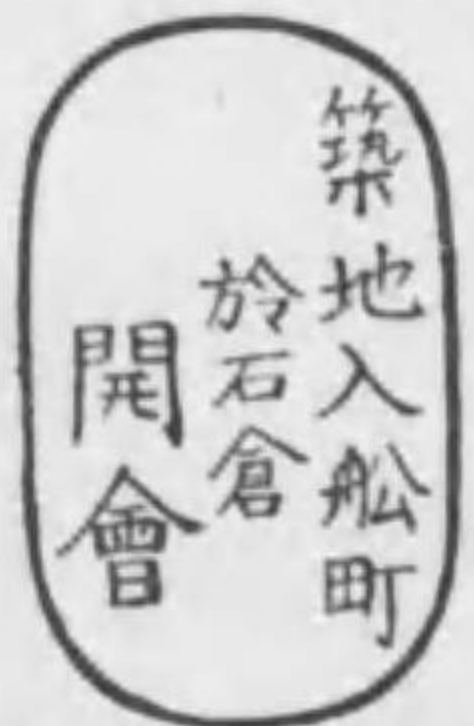 築地入舩町
於石倉
開會